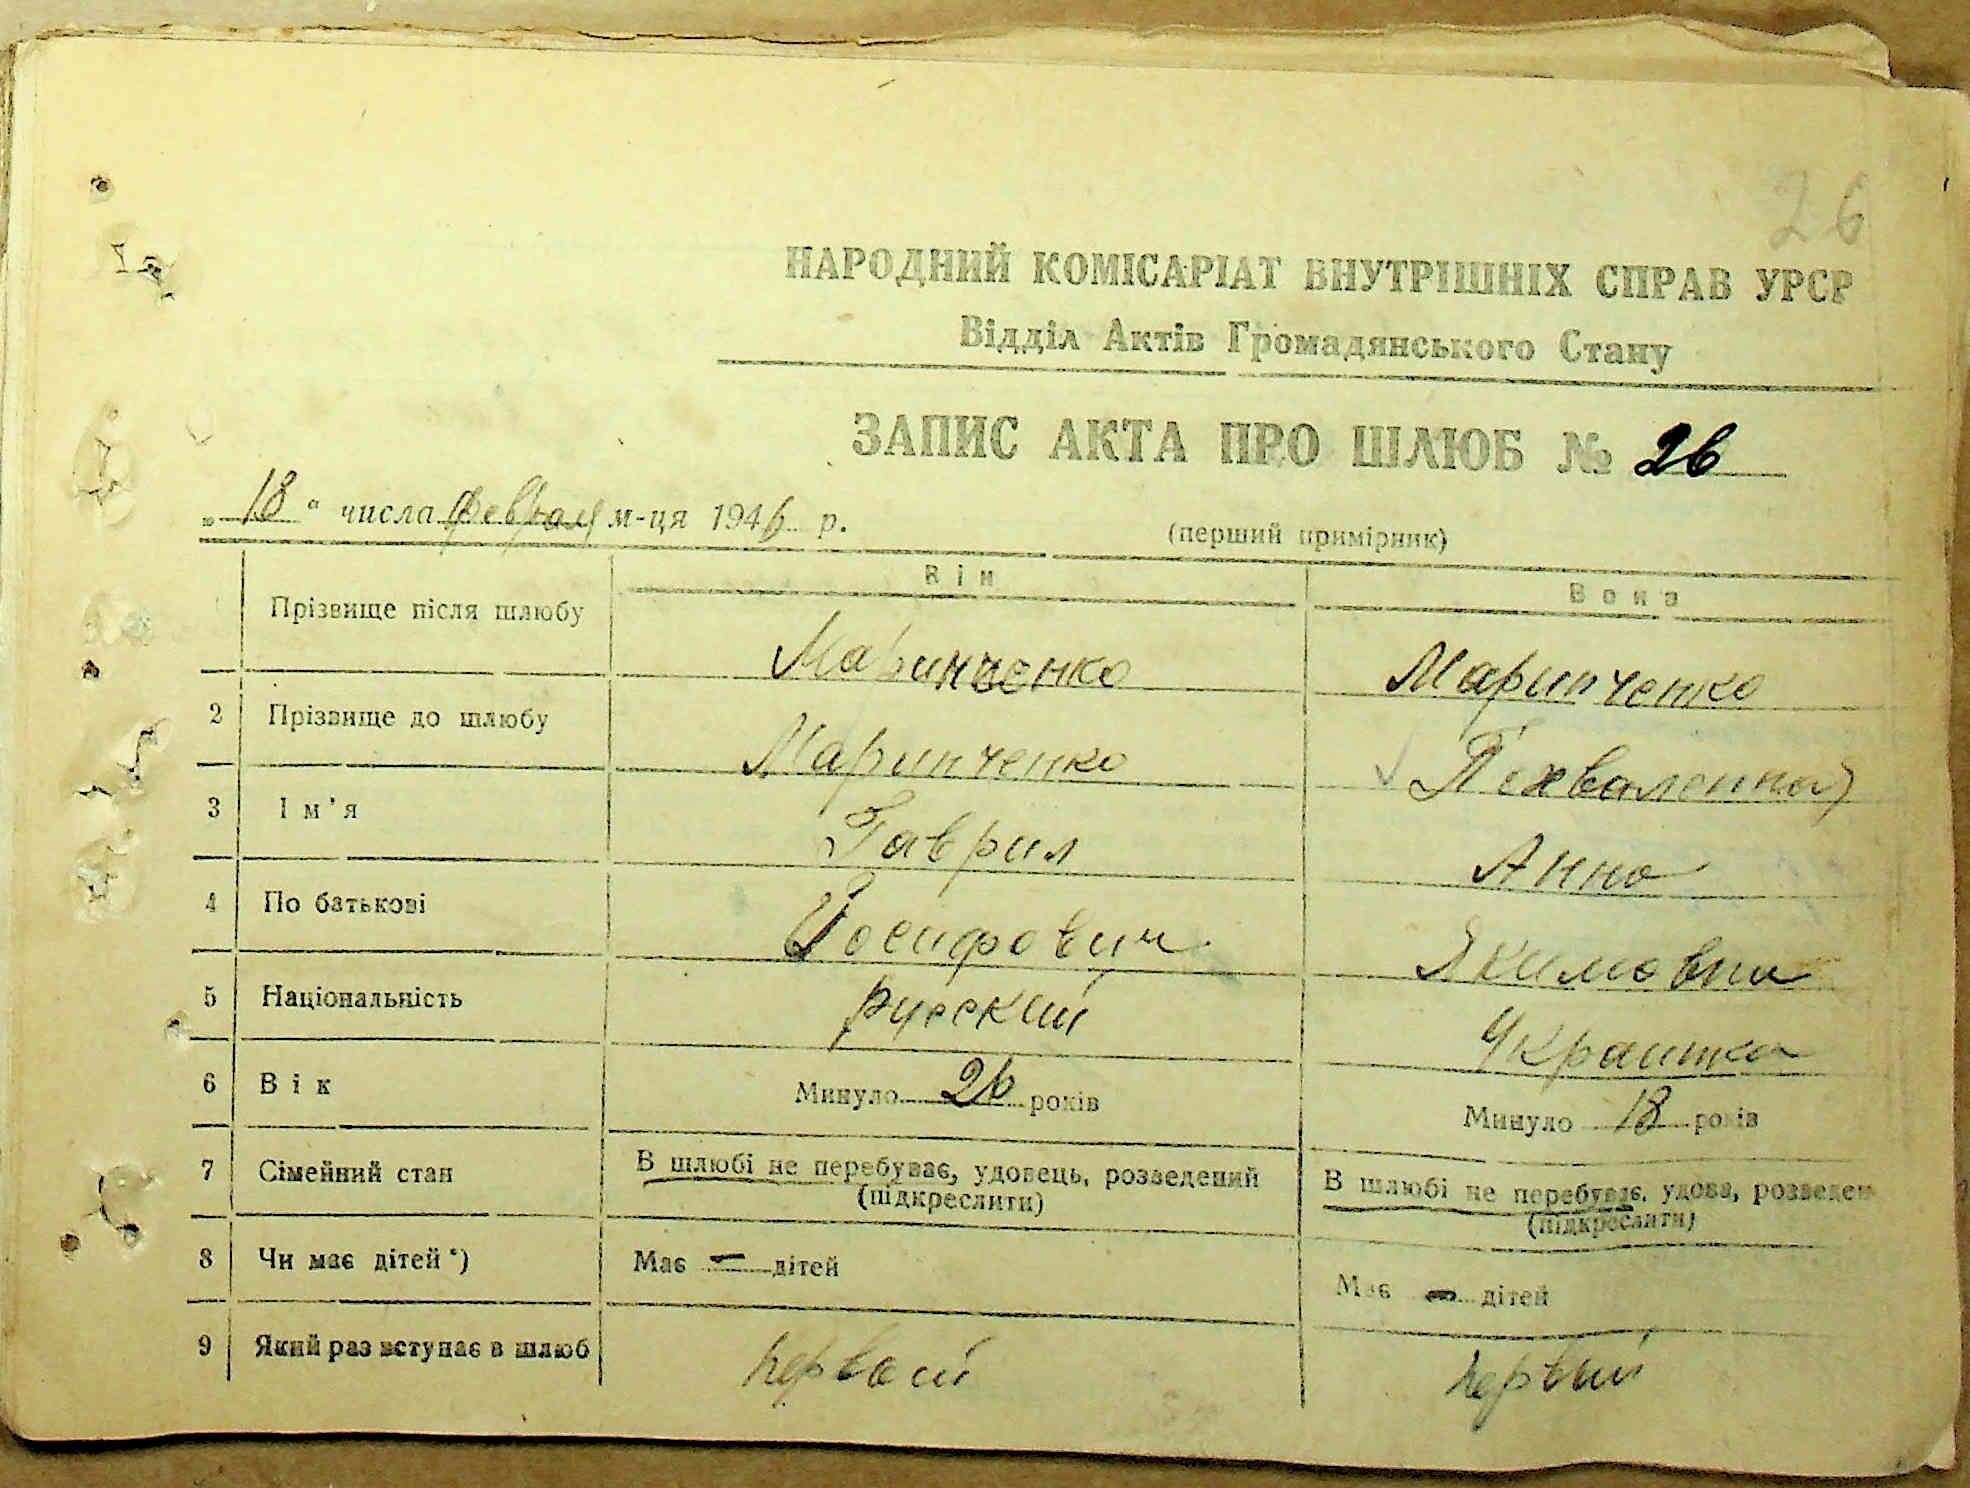 26
НАРОДНИЙ КОМІСАРІАТ ВНУТРІШНІХ СПРАВ УРСР
Відділ Актів Громадянського Стану
ЗАПИС АКТА ПРО ШЛЮБ № 26
„ 18 " числа февраля м-ця 1946 р.
(перший примірник)
Він Вона
Прізвище після шлюбу Маринченко Маринченко
2 Прізвище до шлюбу Маринченко
3 Ім'я Гаврил Анна
4 По батькові Иосифович Якимовна
5 Національність русский Украинка
6 Вік Минуло 26 років Минуло 18 років
7 Сімейний стан В шлюбі не перебуває, удовець, розведений В шлюбі не перебуває, удова, розведен
(підкреслити) (підкреслити)
8 Чи має дітей*) Має — дітей Має — дітей
9 Який раз вступає в шлюб первый первый